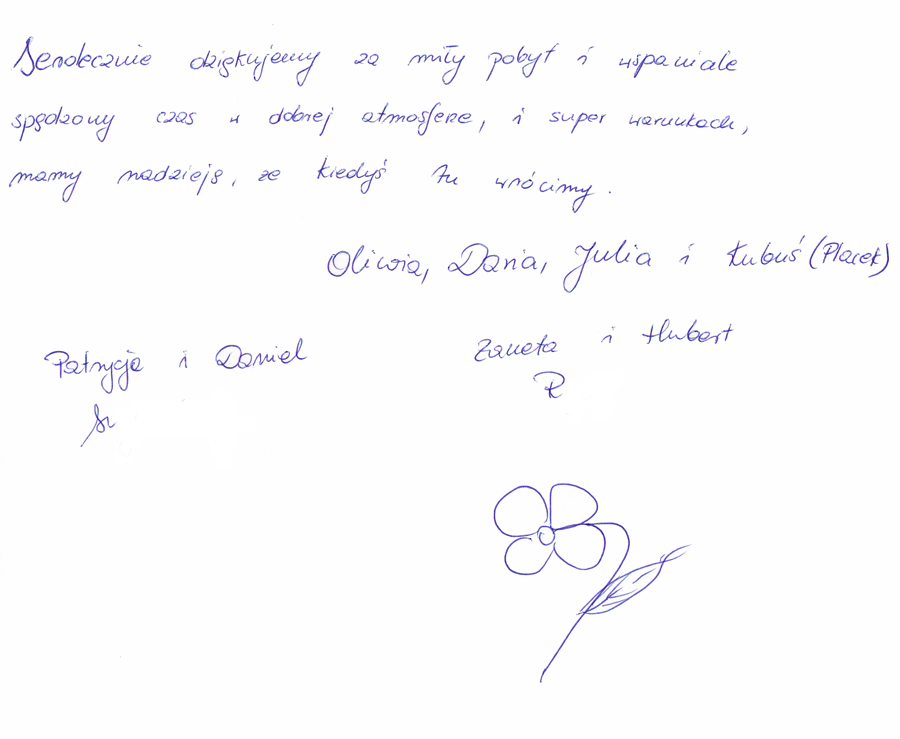 Serdecznie dziękujemy za miły pobyt i wspaniale
spędzony czas w dobrej atmosferze, i super warunkach,
mamy nadzieję, że kiedyś tu wrócimy.
Oliwia, Daria, Julia i Kubuś (Placek)
Patrycja i Daniel
Żaneta i Hubert
R